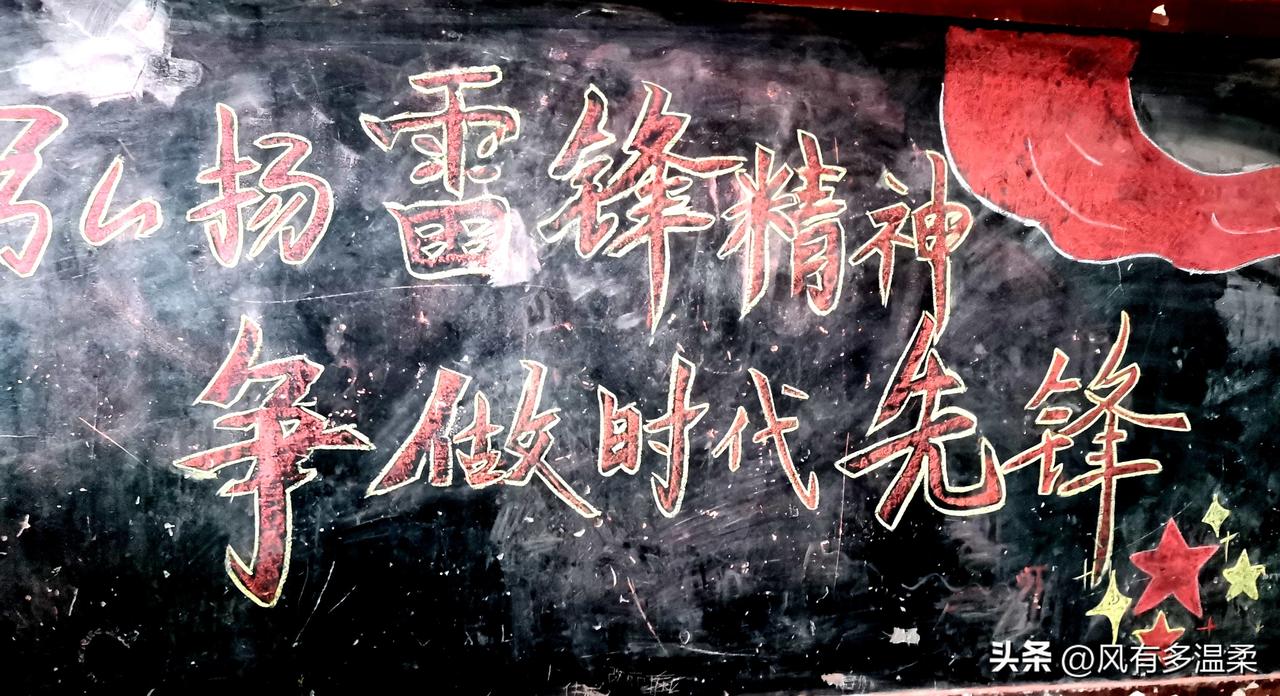 弘扬雷锋精神
争做时代先锋
头条 @风有多温柔